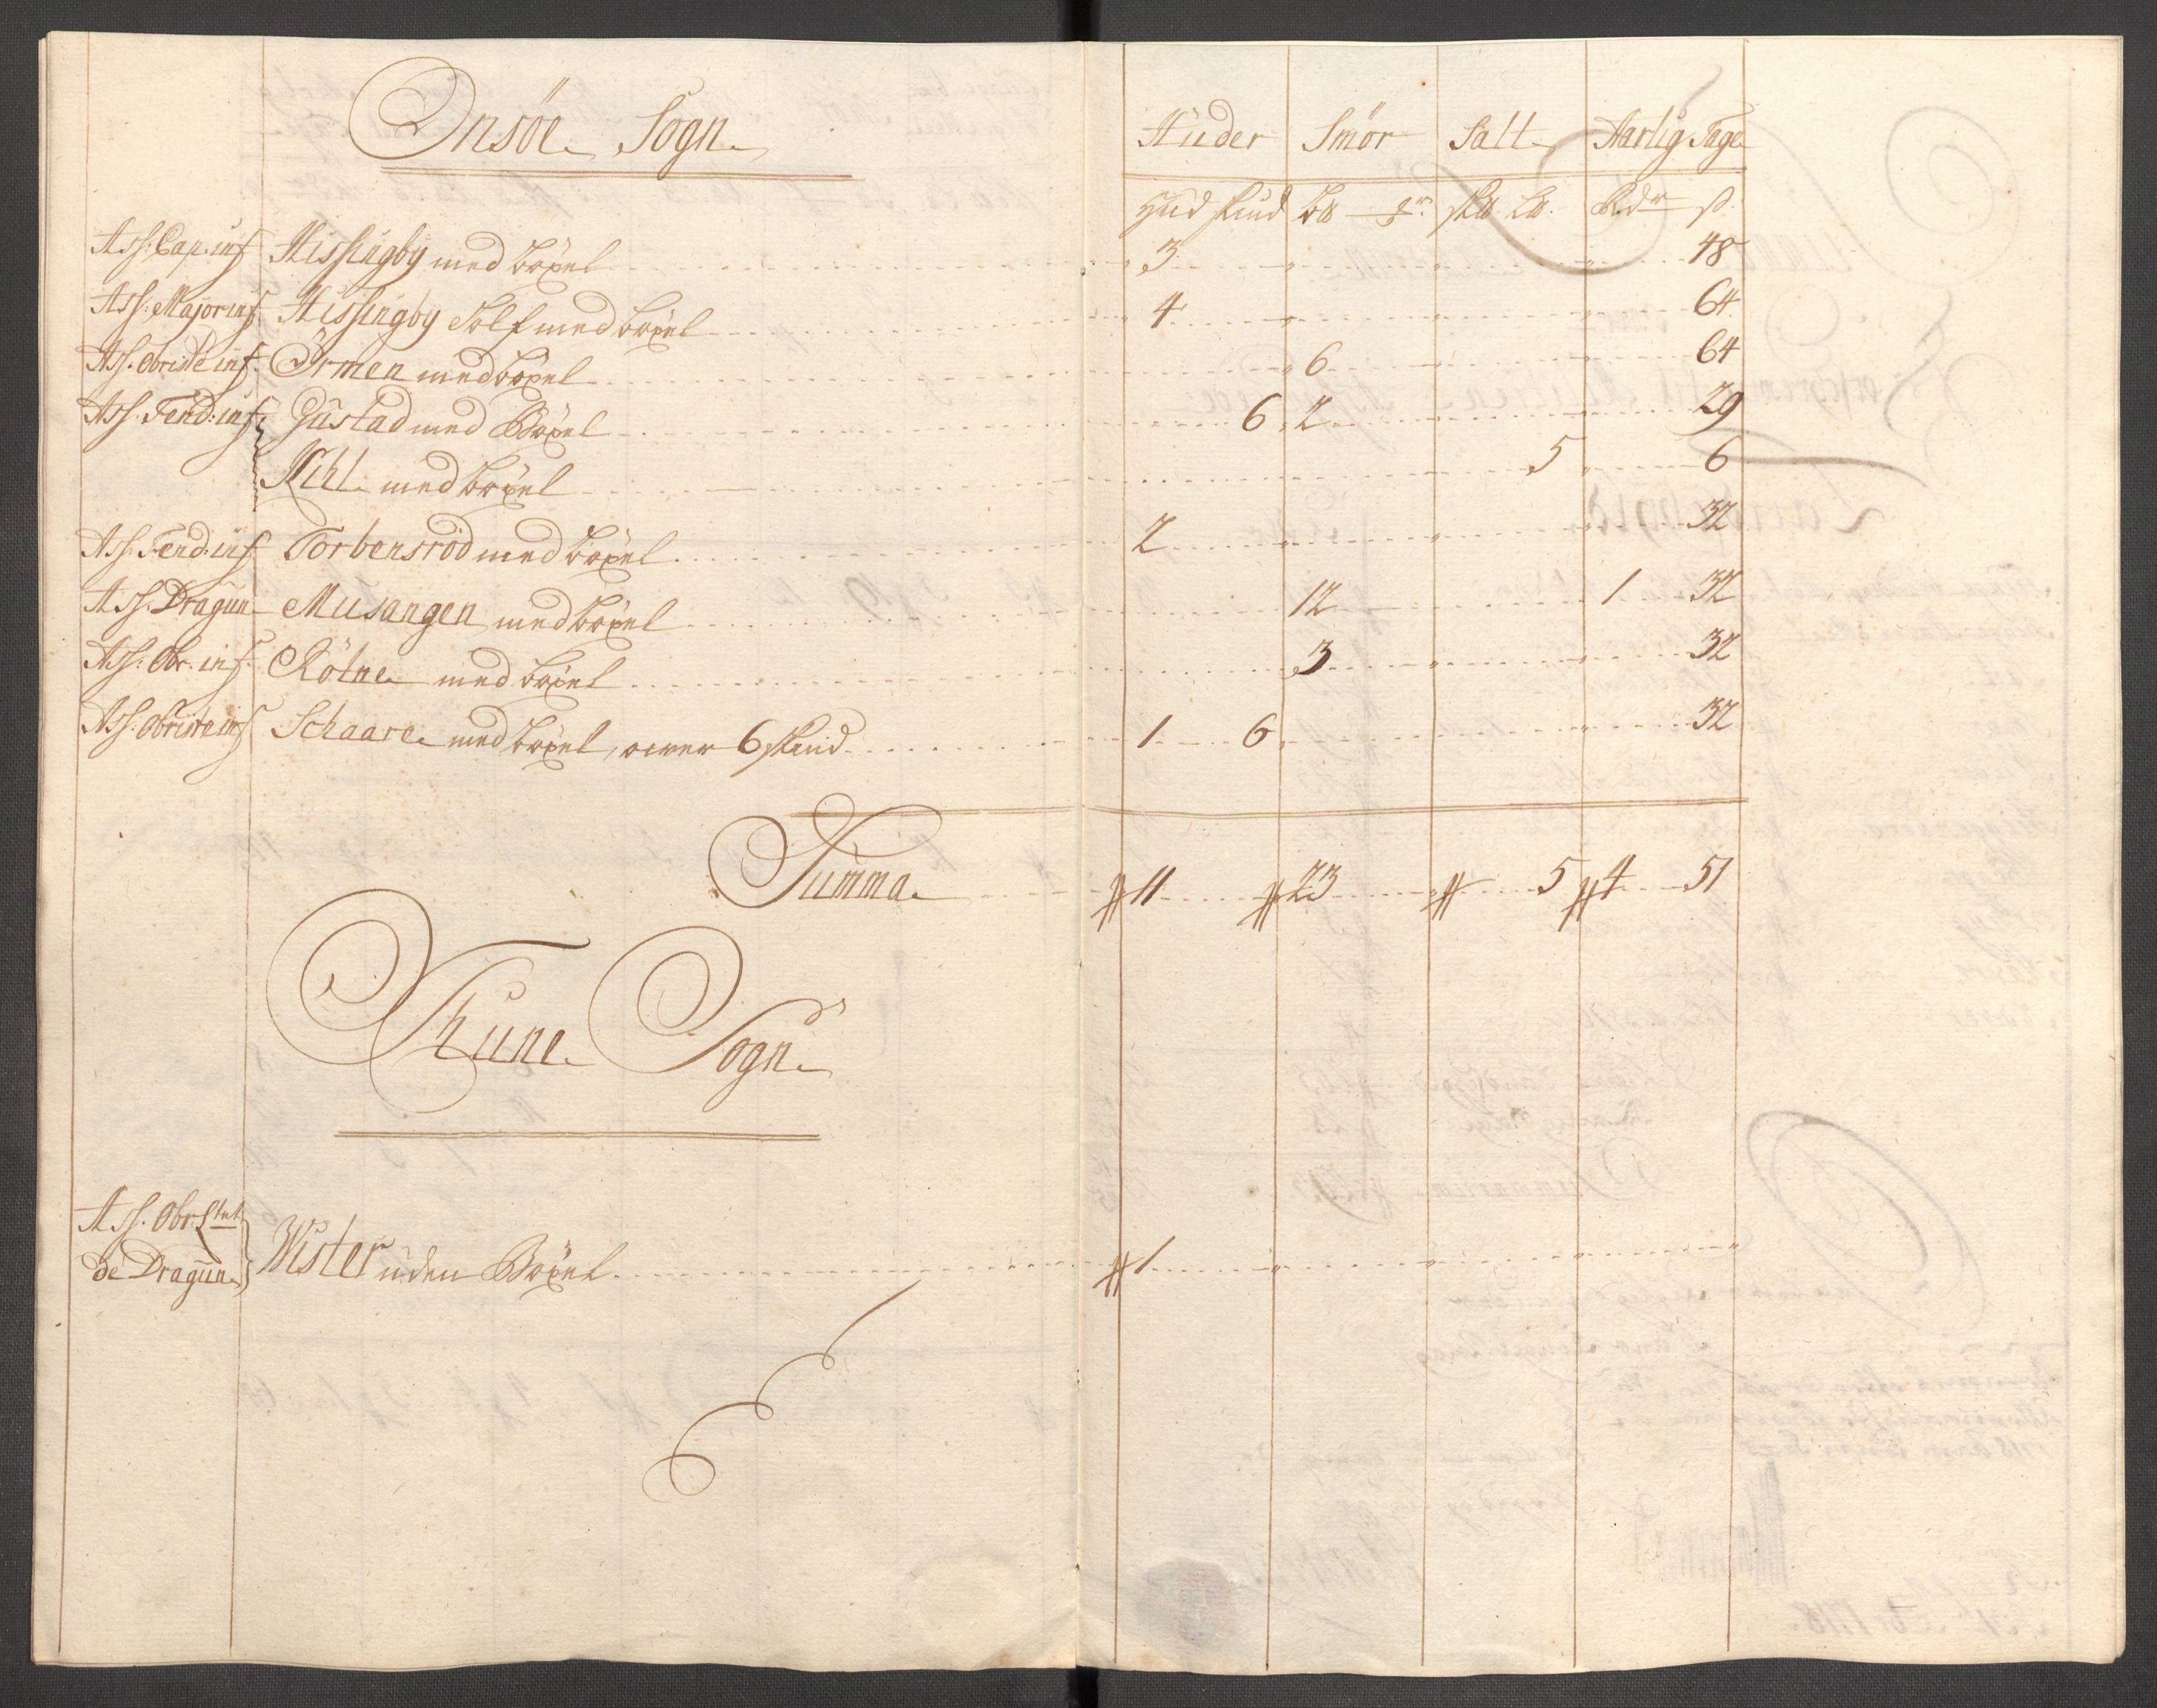 Onsöe Sogn
Huder Smör Salt Aarlig Tage
Hud skind Rdr ß
Ass: Cap: inf Hissingby med böxel 3 48
Ass: Major inf Hissingby Tolf med böxel 4 64
Ass: Obriste inf: Örmen med böxel 6 64
Ass: Fend: inf Gustad med Böxel 6 2 29
Kihl med böxel 5 6
Ass: Fend: inf Torbensröd med böxel 2 32
Ass: Dragun Musangen med böxel 12 1 32
Ass: Obr: inf: Rötne med böxel 3 32
Ass: Obriste inf Schaare med böxel, ower 6 skind 1 6 32
Summa 11 23 5 4 51
Thune Sogn
Ass: Obr: Ltnt
de Dragun Wister uden Böxel 1